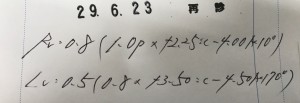 29.6.23 再診
Rv=0.8(1.0p×+2.25=c-4.00A×10°)
Lv=0.5(0.8×+3.50=c-4.50A×170°)